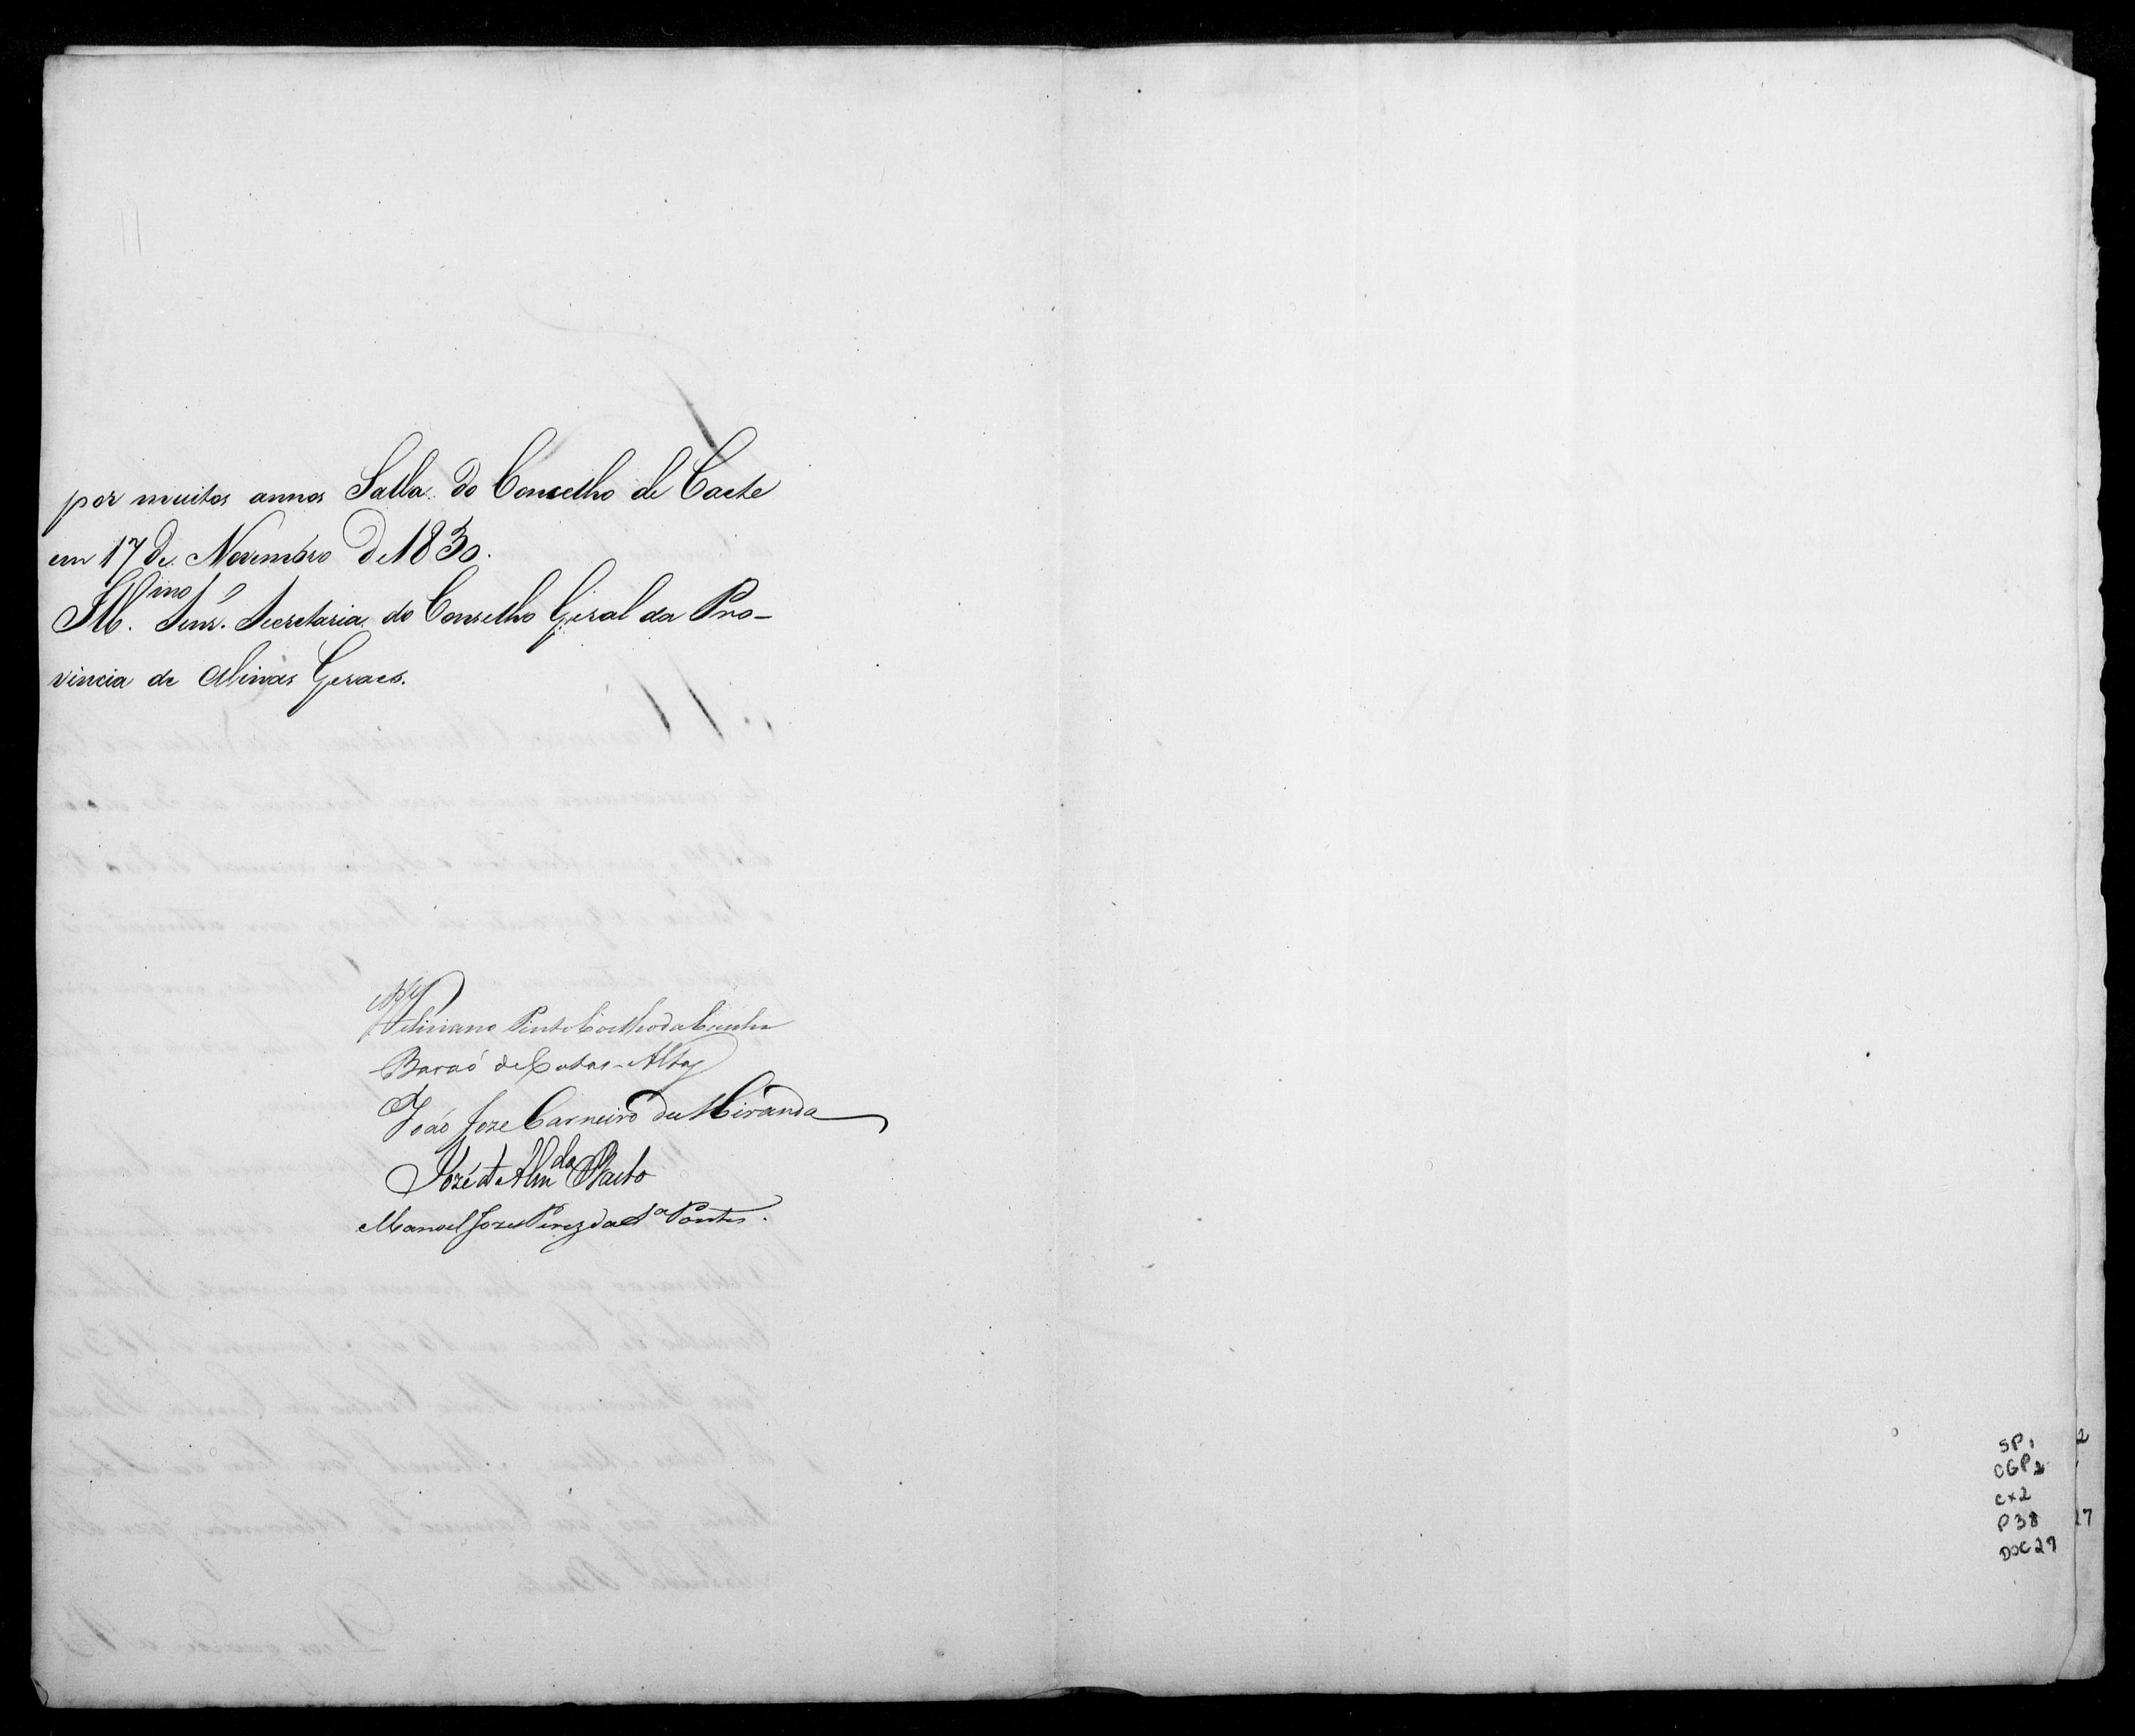 por muitos annos Salla do Concelho de Caete
em 17 de Novembro de 1830.
Ill.mo Senr. Secretario do Conselho Geral da Pro-
vincia de Minas Geraes.
Feliciano Pinto Coelho da Cunha
Baraõ de Catas-Altas
João Joze Carneiro de Miranda
Jozé de Alm.da Barto
Manoel Joze Pires da S.a Pontes.
SP1
CGP2
cx2
P38
DOC27